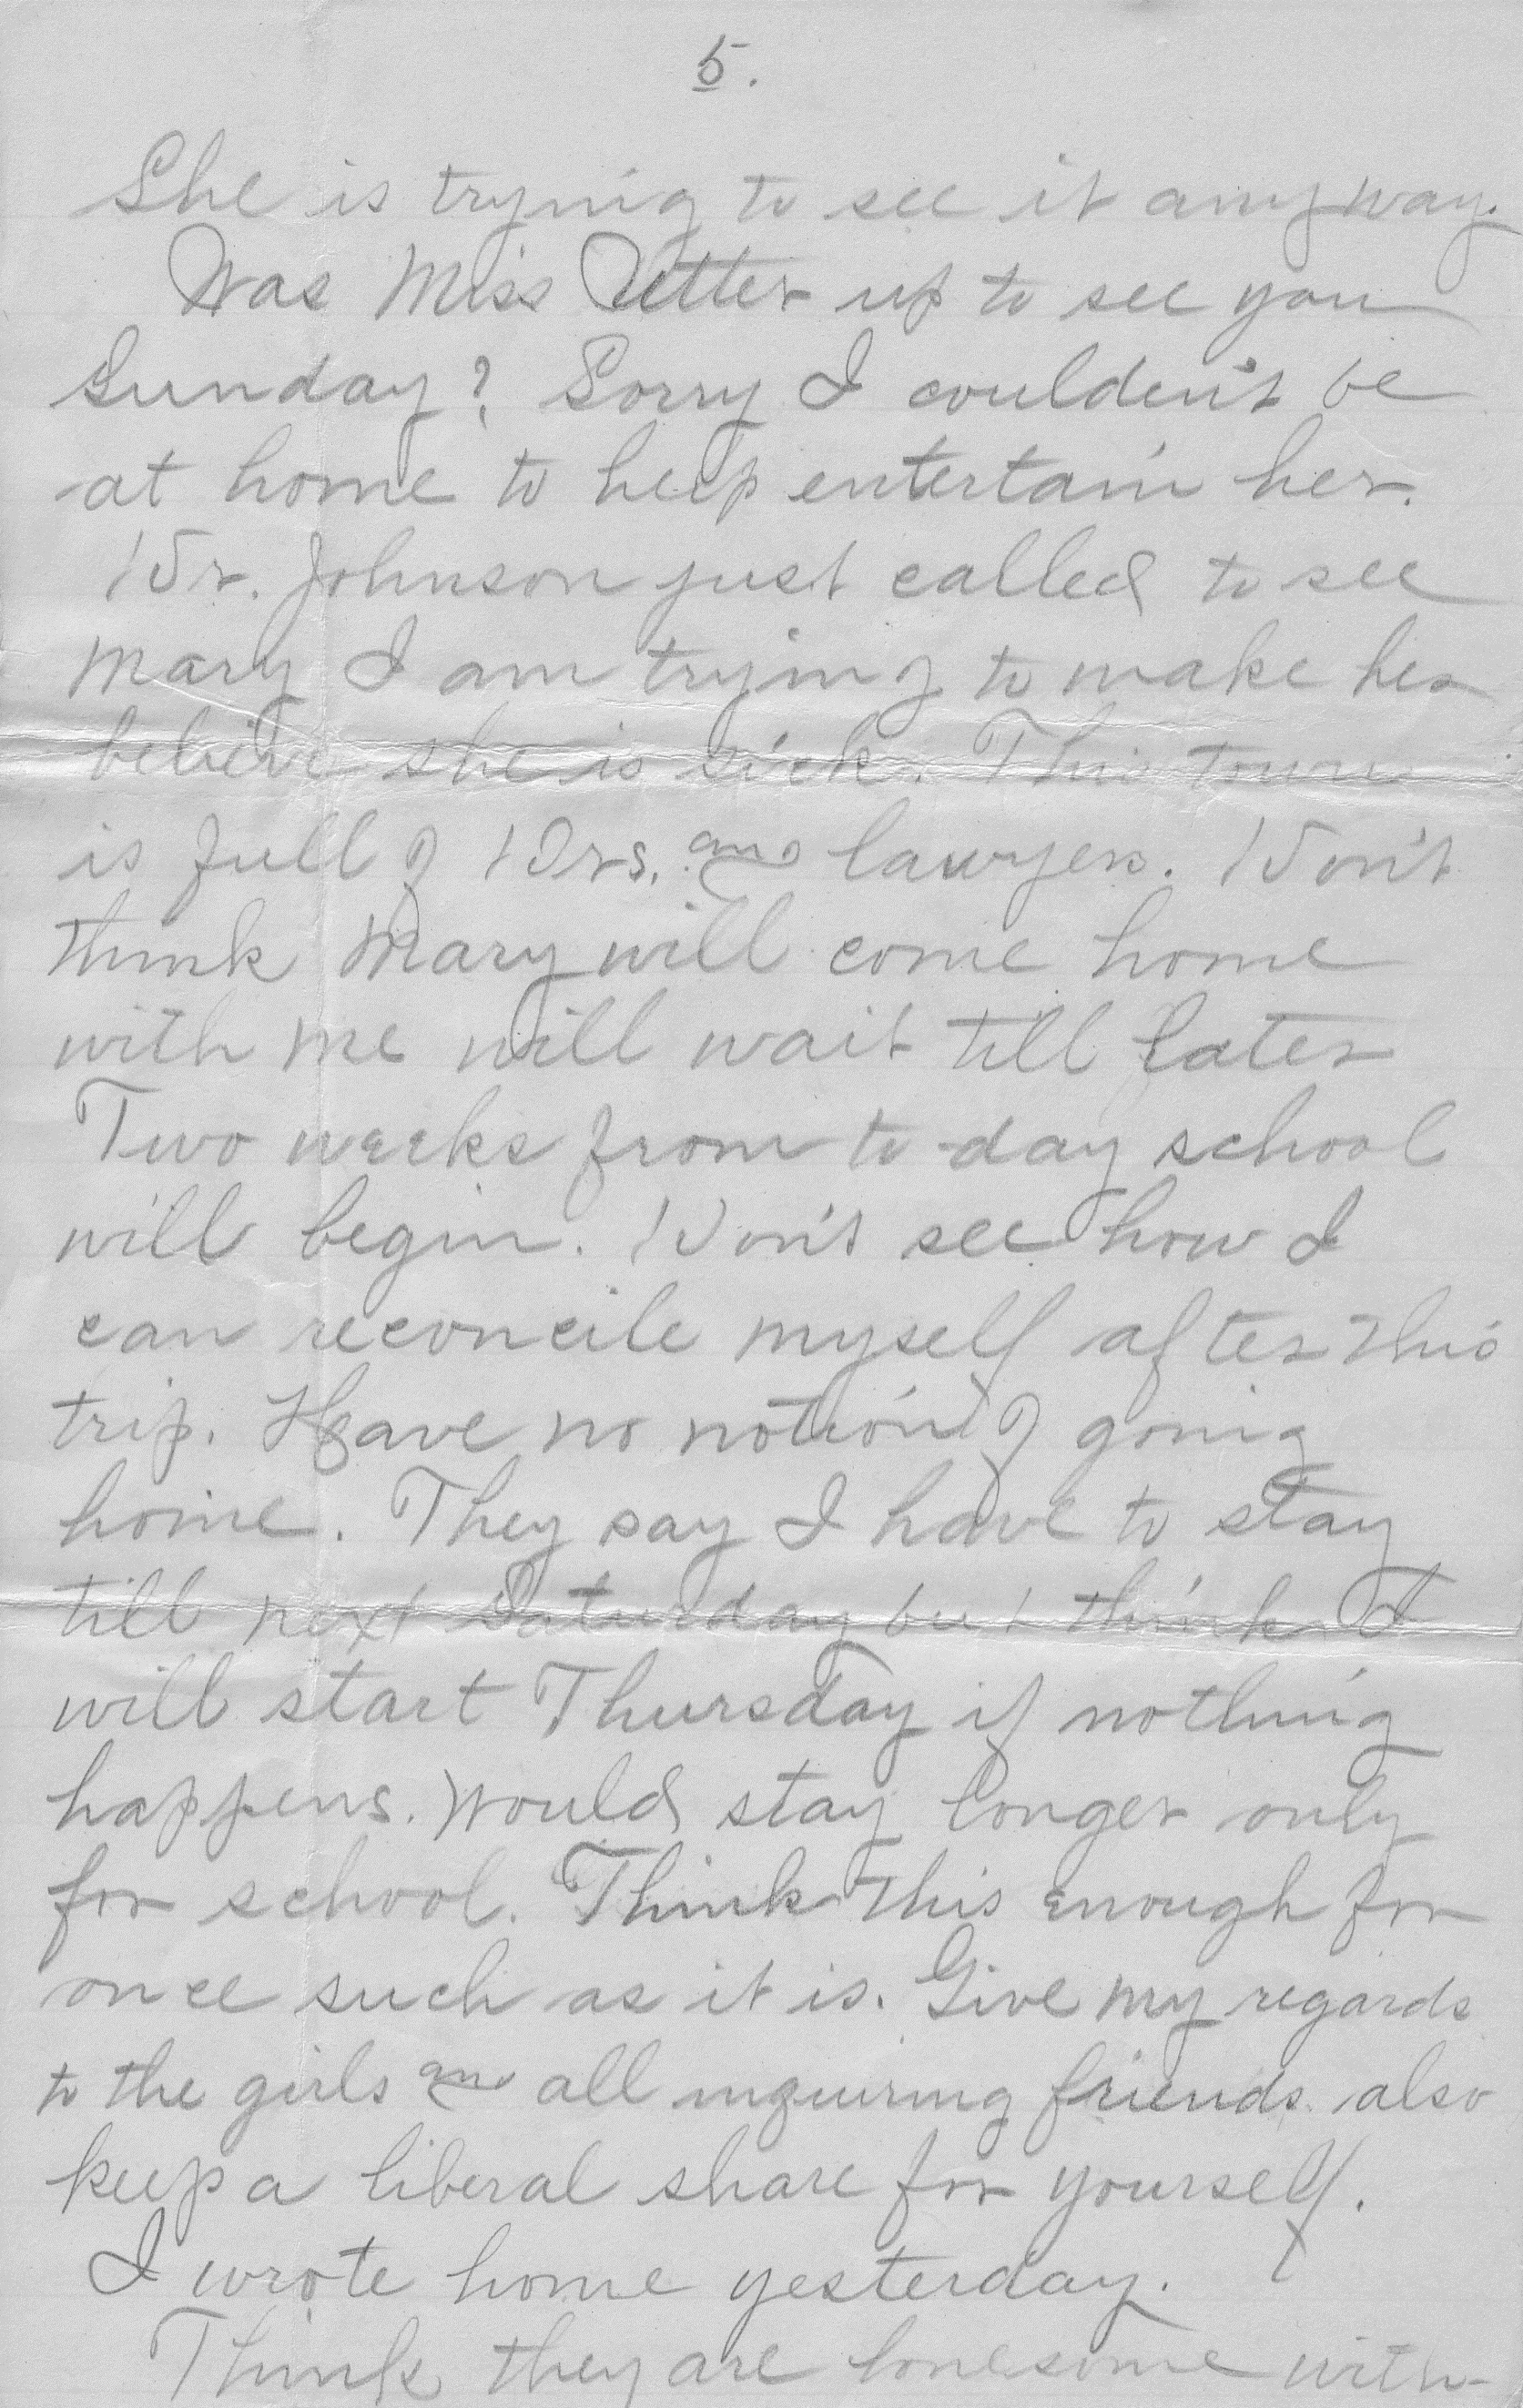 5.
She is trying to see it anyway.
Was Miss Utter up to see you
Sunday? Sorry I couldent be
at home to help entertain her.
Dr. Johnson just called to see
Mary I am trying to make her
believe she is sick. This town
is full of Drs. and lawyers. Don't
think Mary will come home
with me will wait till later
Two weeks from to-day school
will begin. Don't see how I
can reconcile myself after this
trip. Have no notion of going
home. They say I have to stay
till next Saturday but think I
will start Thursday if nothing
happens. Would stay longer only
for school. Think this enough for
once such as it is. Give my regards
to the girls and all inquiring friends also
keep a liberal share for yourself.
I wrote home yesterday.
Think they are lonesome with-